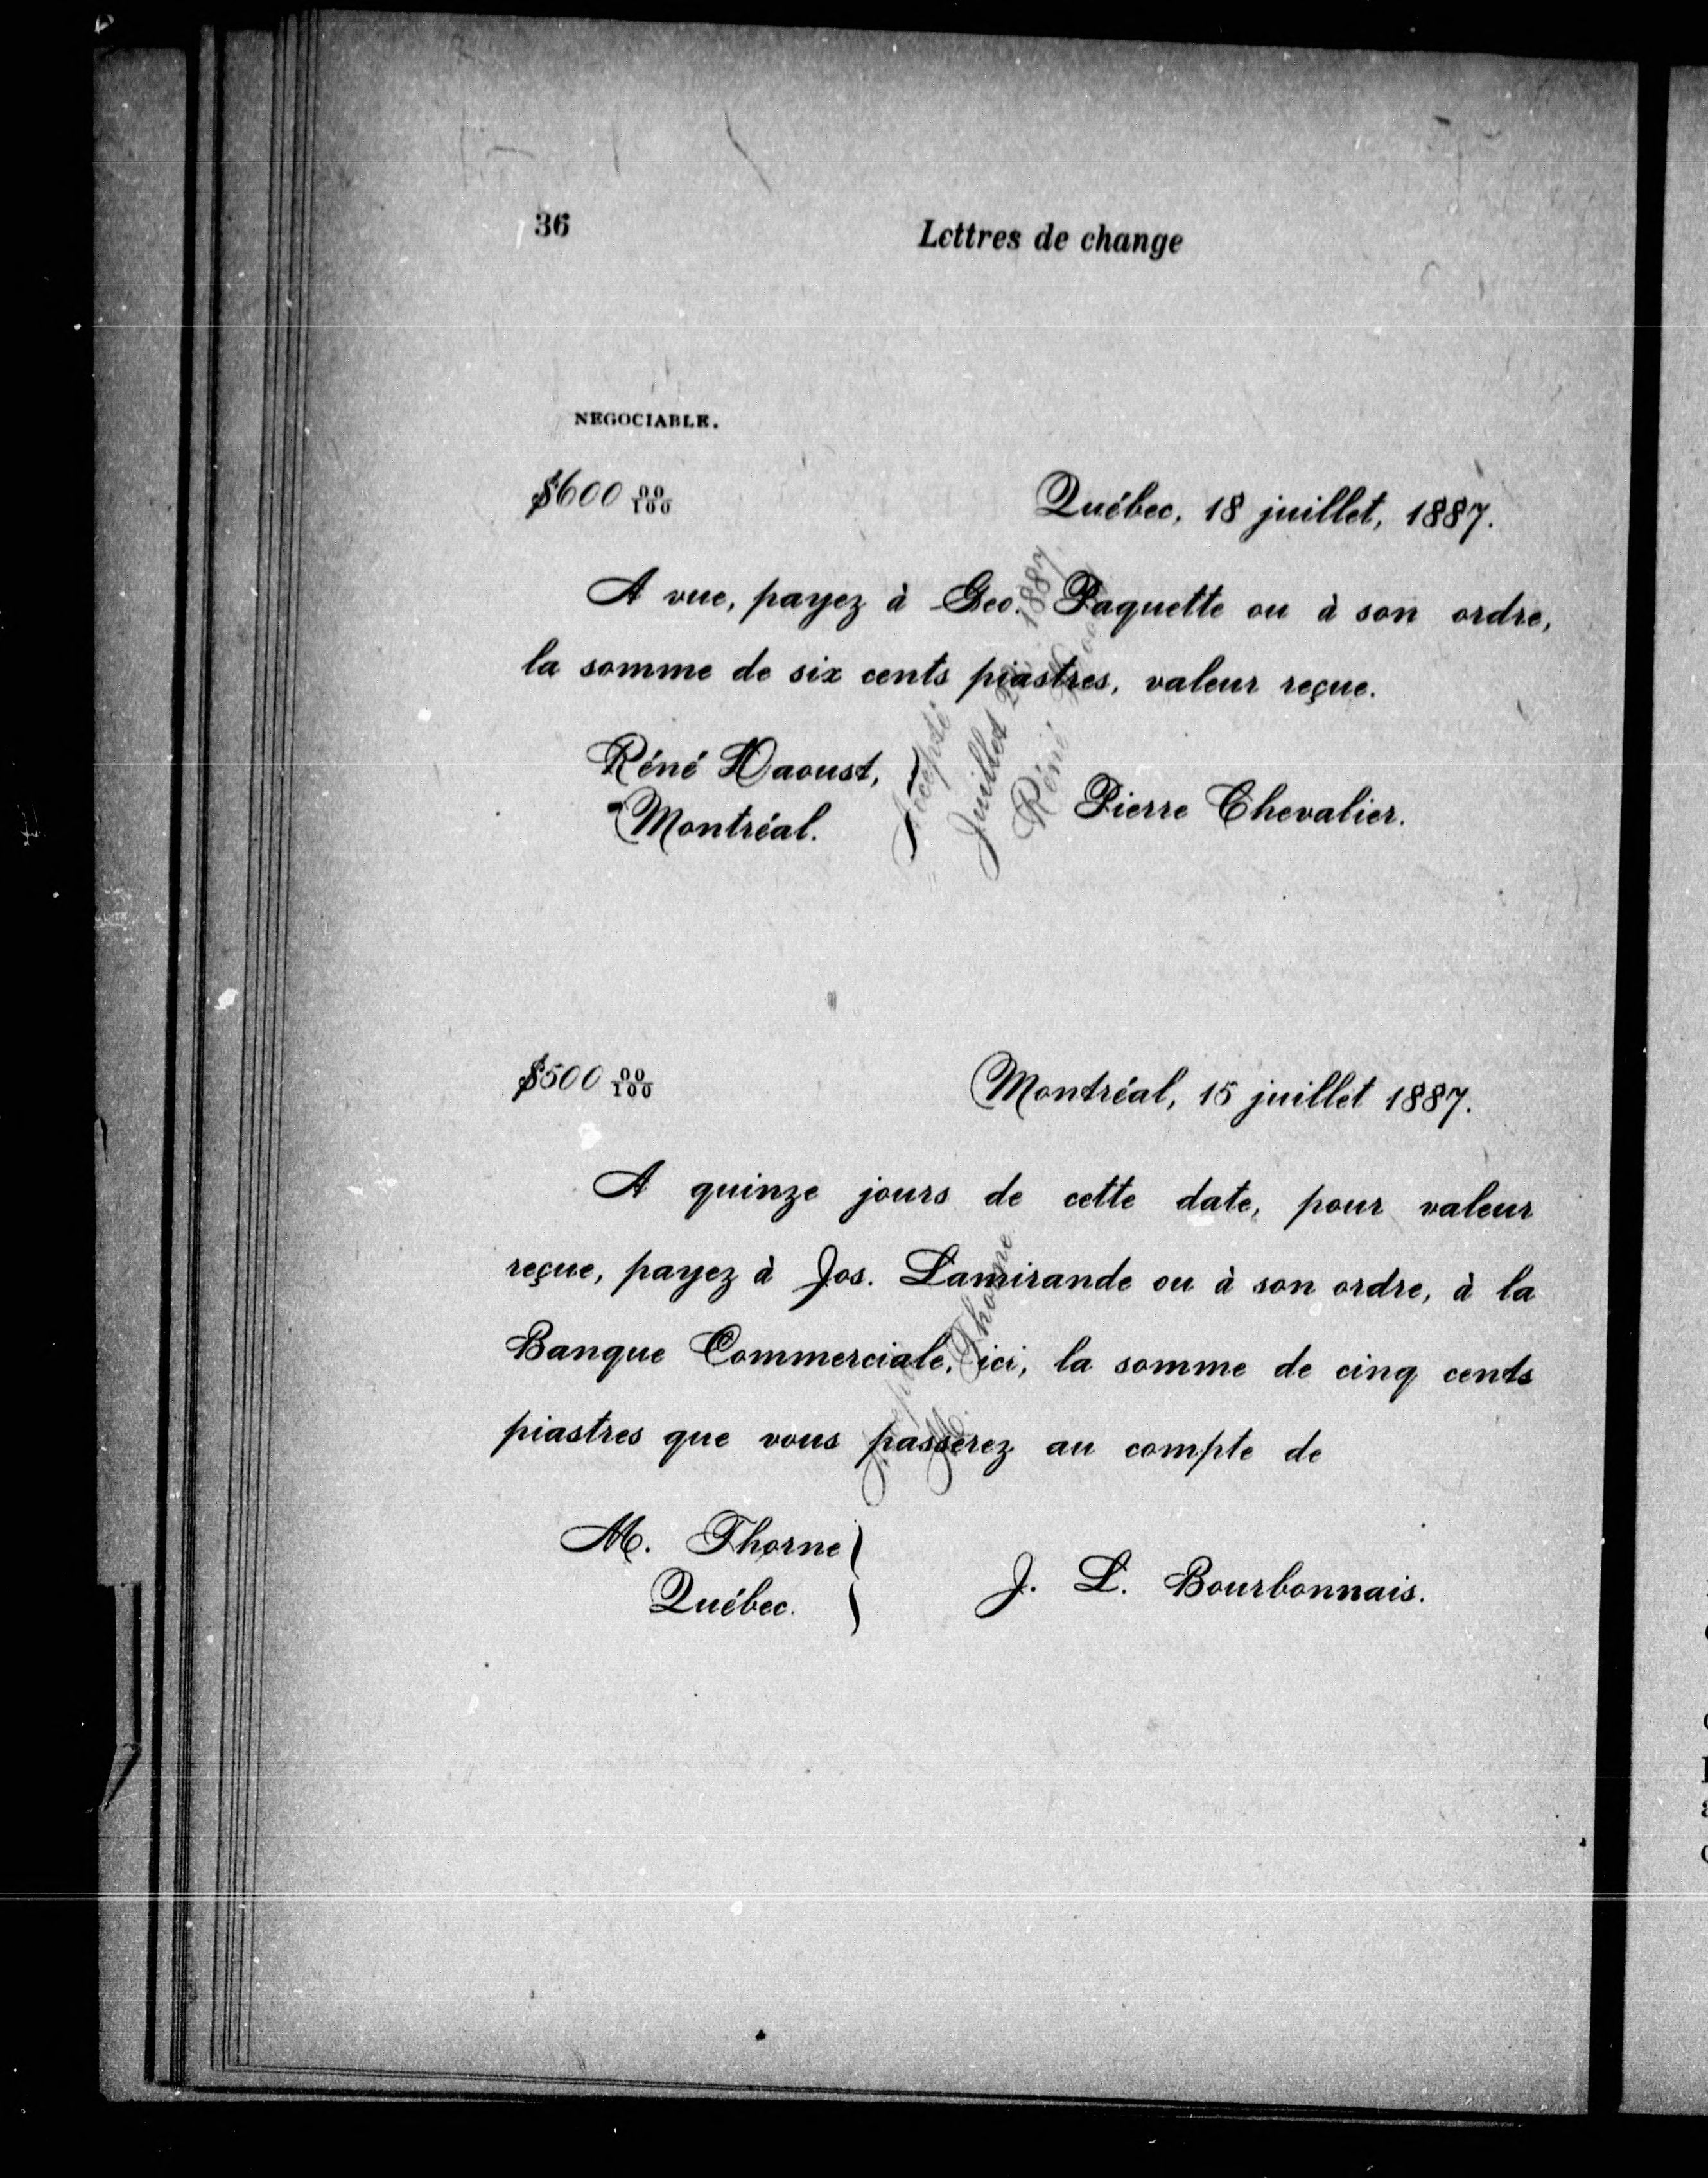 36
Lettres de change
NEGOCIABLE.
$600 00/100
Québec, 18 juillet, 1887.
A vue, payez à Geo. Paquette ou à son ordre,
la somme de six cents piastres, valeur reçue.
Réné Daoust,
Montréal.
Accepté
Juillet 1887
Réné
Pierre Chevalier.
$500 00/100
Montréal, 15 juillet 1887.
A quinze jours de cette date, pour valeur
reçue, payez à Jos. Lamirande ou à son ordre, à la
Banque Commerciale, ici, la somme de cinq cents
piastres que vous passerez au compte de
M. Thorne
M. Thorne
Québec.
J. L. Bourbonnais.